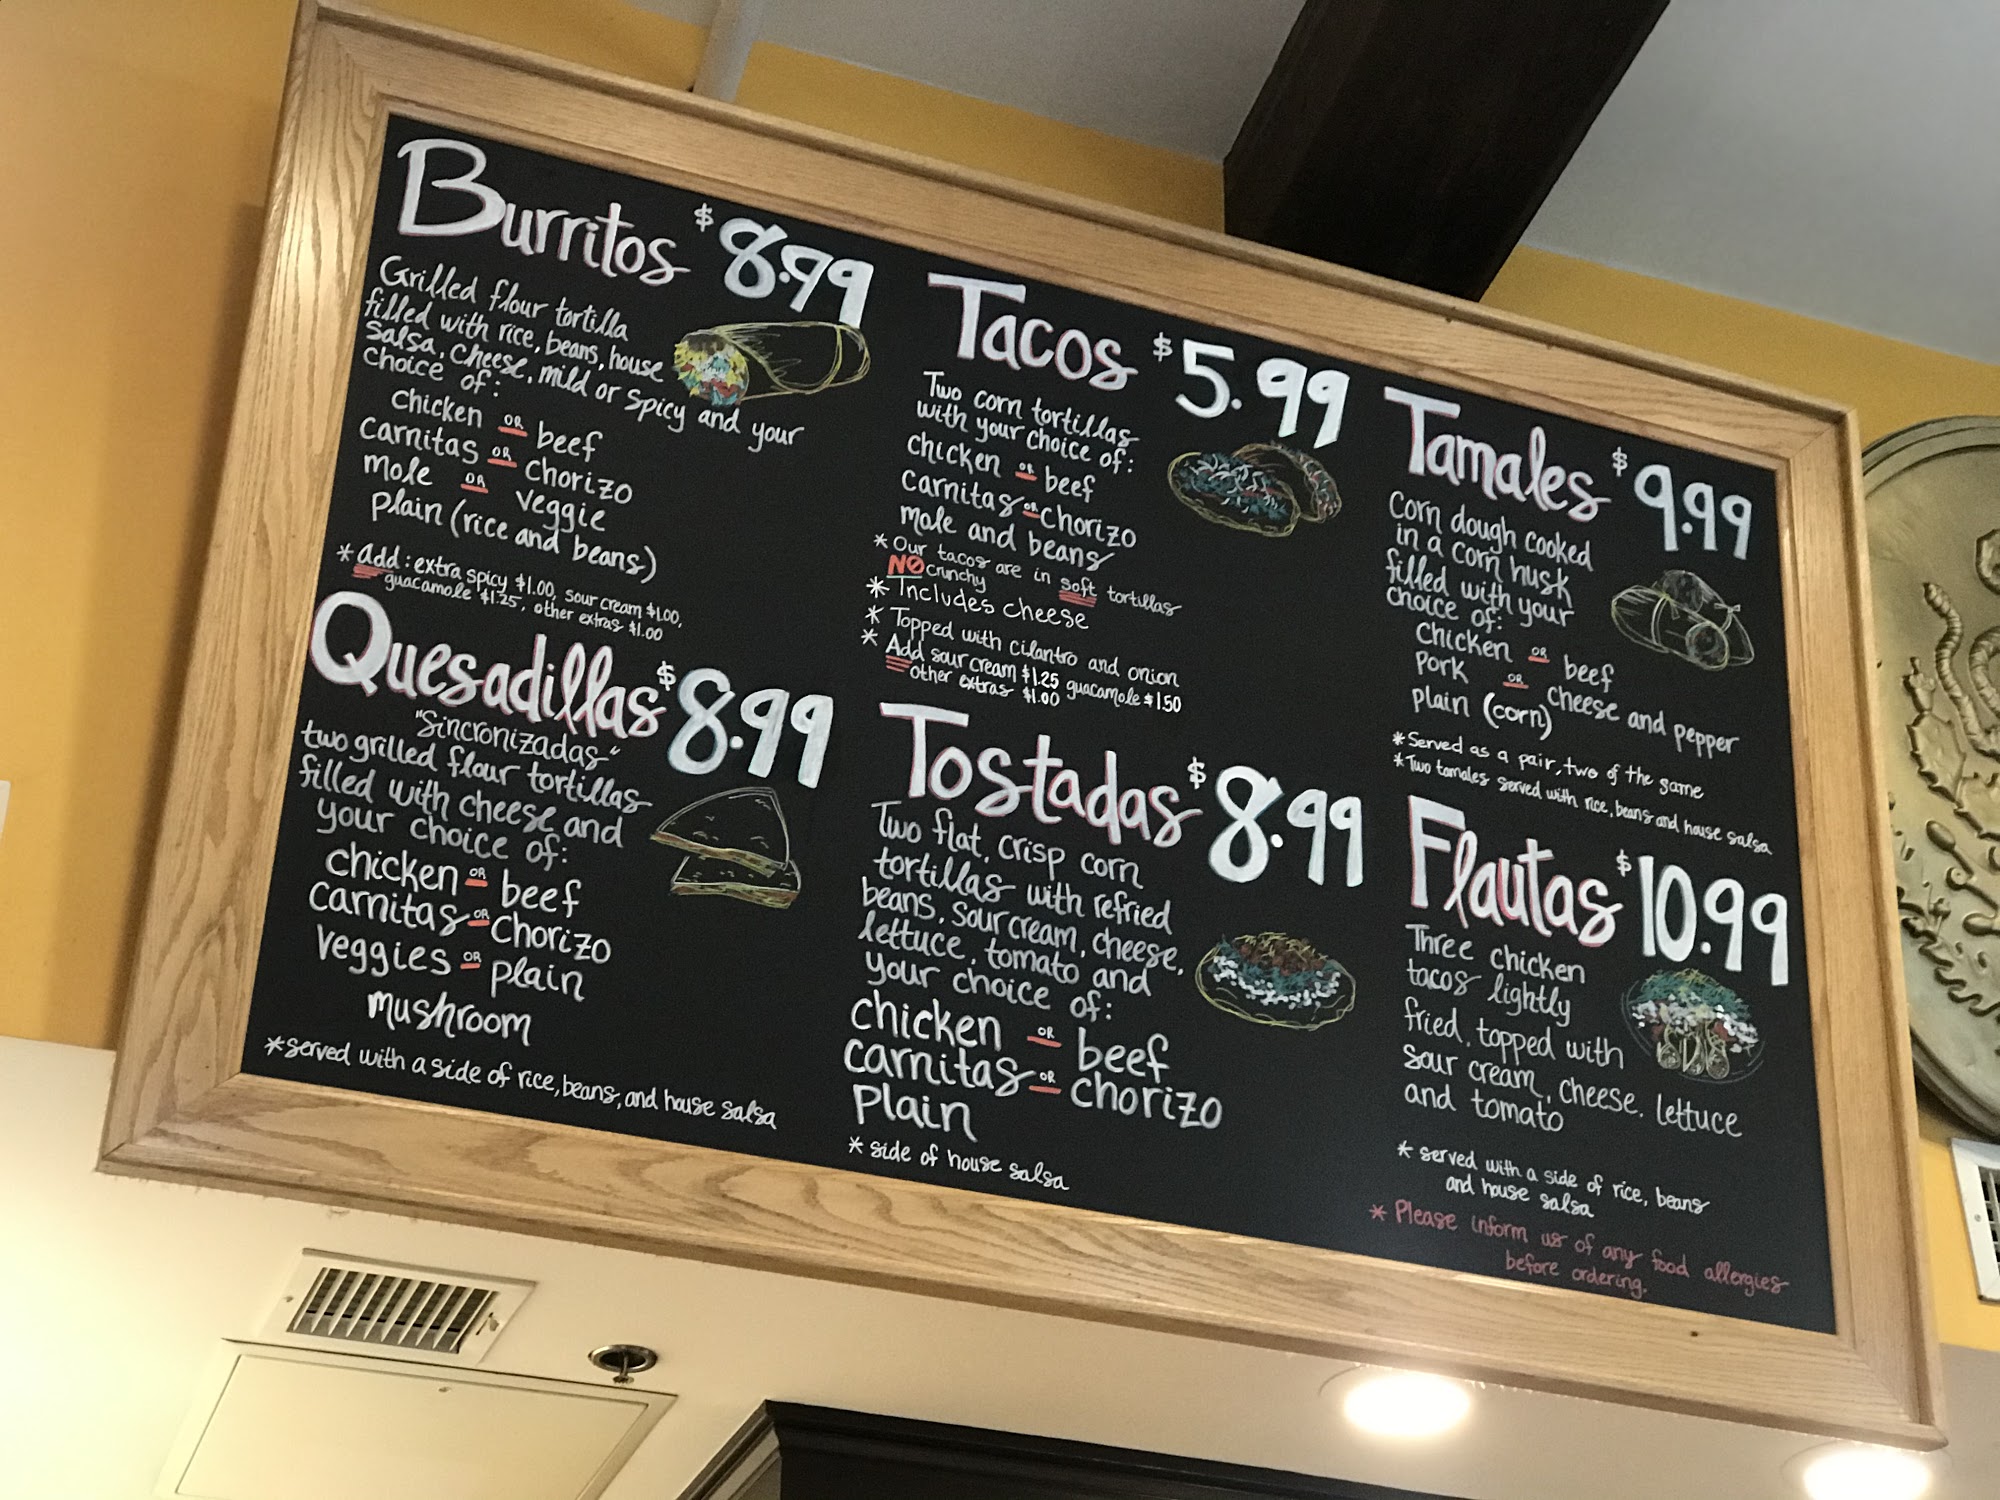 Burritos $8.99
Grilled flour tortilla
filled with rice, beans, house
salsa, cheese, mild or spicy and your
choice of:
chicken OR beef
carnitas OR chorizo
mole OR veggie
plain (rice and beans)
* Add: extra spicy $1.00, sour cream $1.00,
guacamole $1.25, other extras $1.00
Quesadillas $8.99
"Sincronizadas"
two grilled flour tortillas
filled with cheese and
your choice of:
chicken OR beef
carnitas OR chorizo
veggies OR plain
mushroom
* served with a side of rice, beans, and house salsa
Tacos $5.99
Two corn tortillas
with your choice of:
chicken OR beef
carnitas OR chorizo
mole and beans
* Our tacos are in soft tortillas
NO crunchy
* Includes cheese
* Topped with cilantro and onion
* Add sour cream $1.25 guacamole $1.50
other extras $1.00
Tostadas $8.99
Two flat, crisp corn
tortillas with refried
beans, sour cream, cheese,
lettuce, tomato and
your choice of:
chicken OR beef
carnitas OR chorizo
plain
* side of house salsa
Tamales $9.99
Corn dough cooked
in a corn husk
filled with your
choice of:
chicken OR beef
pork OR cheese and pepper
plain (corn)
* Served as a pair, two of the same
* Two tamales served with rice, beans and house salsa
Flautas $10.99
Three chicken
tacos lightly
fried, topped with
sour cream, cheese, lettuce
and tomato
* served with a side of rice, beans
and house salsa
* Please inform us of any food allergies
before ordering.